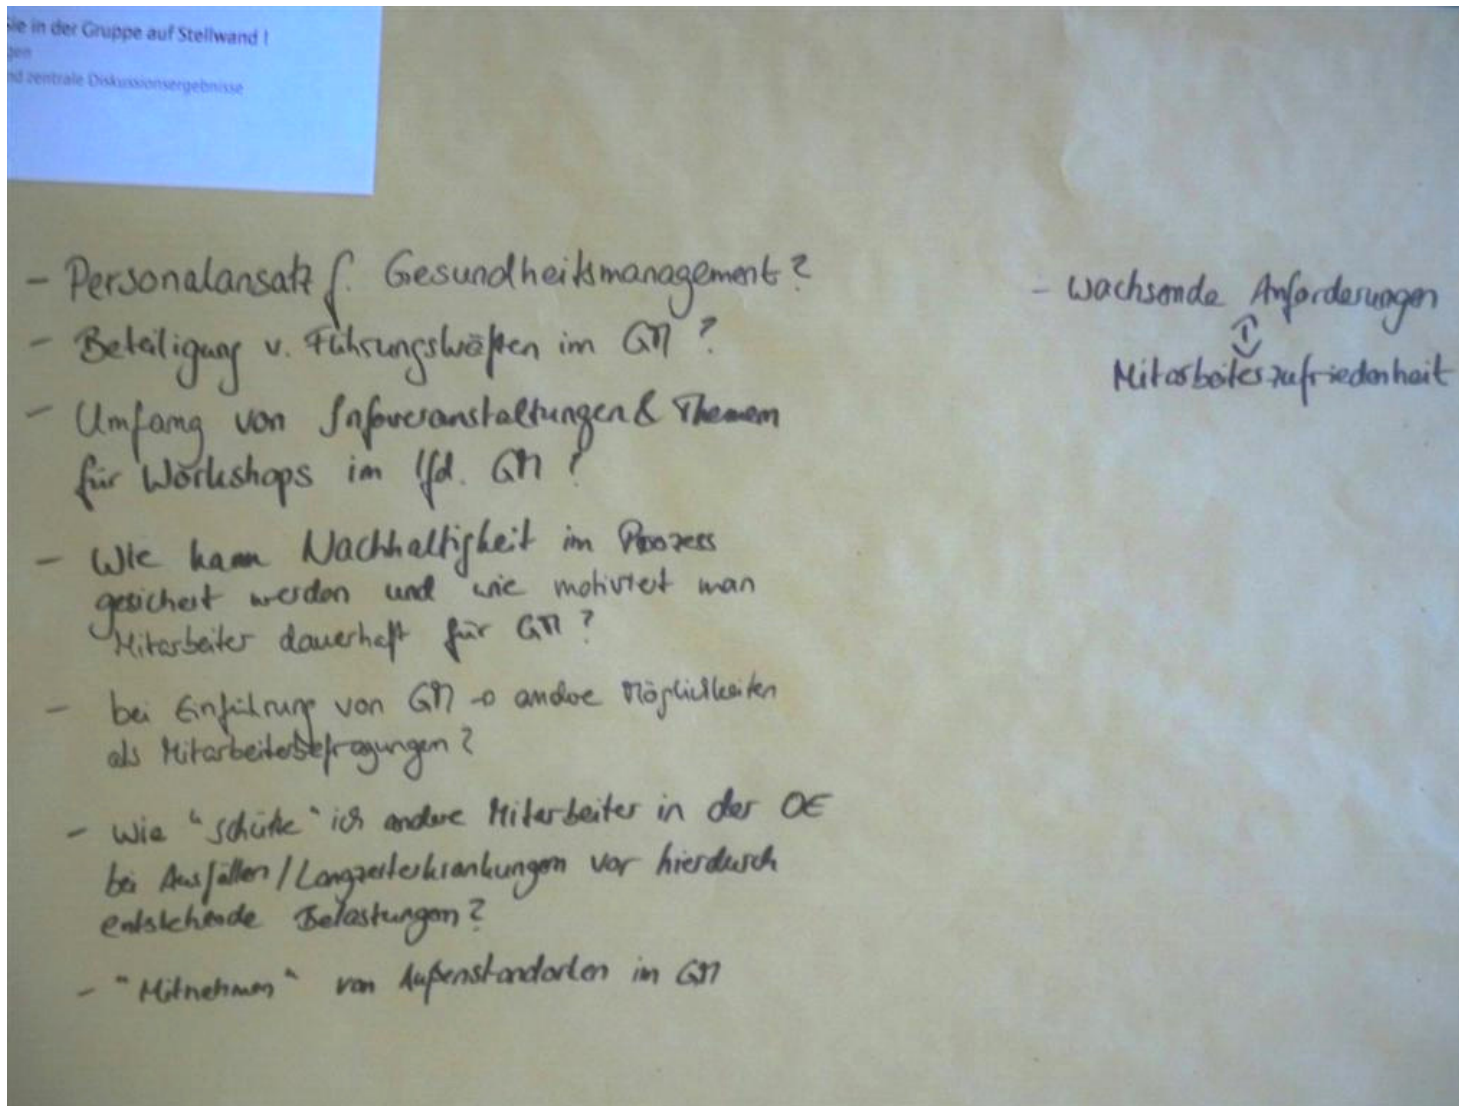 Sie in der Gruppe auf Stellwand !
gen
nd zentrale Diskussionsergebnisse
- Personalansatz f. Gesundheitsmanagement?
- Beteiligung v. Führungskräften im GM?
- Umfang von Infoveranstaltungen & Themen
für Workshops im lfd. GM?
- Wie kann Nachhaltigkeit im Prozess
gesichert werden und wie motiviert man
Mitarbeiter dauerhaft für GM?
- bei Einführung von GM → andere Möglichkeiten
als Mitarbeiterbefragungen?
- Wie "schütze" ich andere Mitarbeiter in der OE
bei Ausfällen/Langzeiterkrankungen vor hierdurch
entstehende Belastungen?
- "Mitnehmen" von Außenstandorten im GM
- wachsende Anforderungen
⇕
Mitarbeiterzufriedenheit